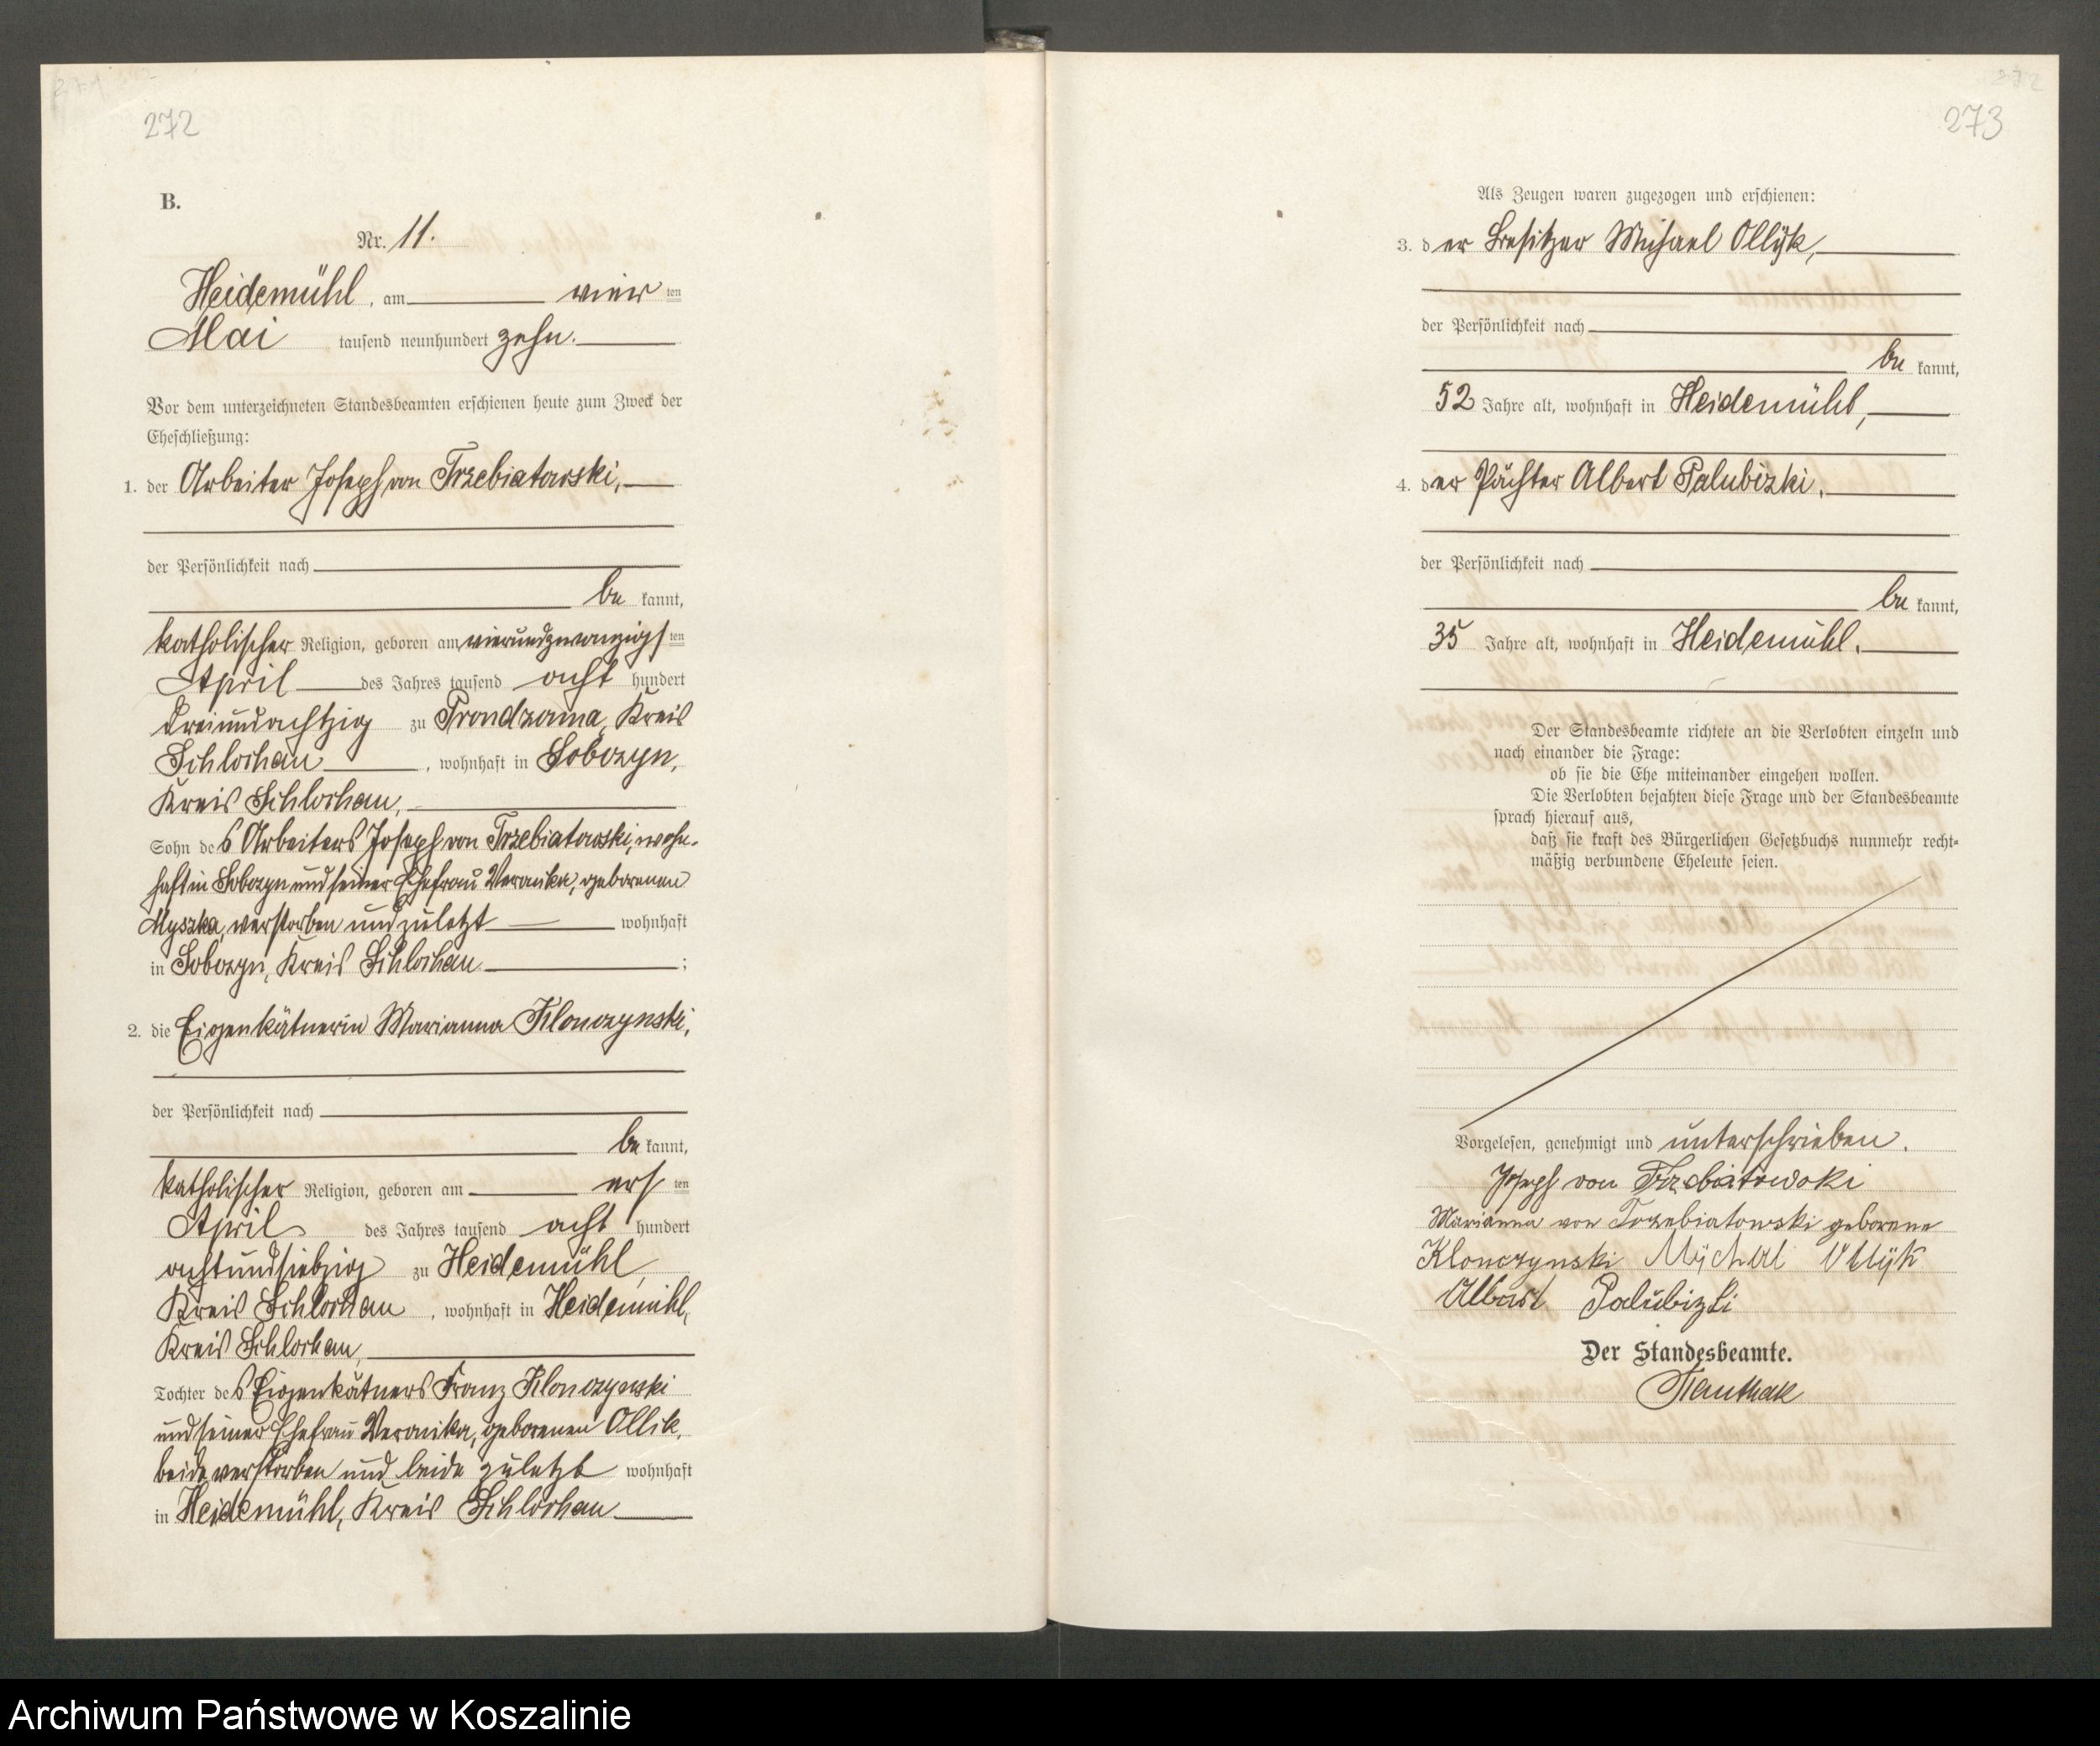 272
B.
Nr. 11.
Heidemühl, am vier ten
Mai tausend neunhundert zehn.
Vor dem unterzeichneten Standesbeamten erschienen heute zum Zweck der
Eheschließung:
1. der Arbeiter Joseph von Trzebiatowski,
der Persönlichkeit nach
be kannt,
katholischer Religion, geboren am vierundzwanzigs ten
April des Jahres tausend acht hundert
dreiundachtzig zu Prondzona, Kreis
Schlochau, wohnhaft in Sobczyn,
Kreis Schlochau,
Sohn des Arbeiters Joseph von Trzebiatowski, wohn-
haft in Sobczyn und seiner Ehefrau Veronika, geborenen
Myszka, verstorben und zuletzt wohnhaft
in Sobczyn, Kreis Schlochau ;
2. die Eigenkätnerin Marianna Klonczynski,
der Persönlichkeit nach
be kannt,
katholischer Religion, geboren am ers ten
April des Jahres tausend acht hundert
achtundsiebzig zu Heidemühl,
Kreis Schlochau, wohnhaft in Heidemühl,
Kreis Schlochau,
Tochter des Eigenkätners Franz Klonczynski
und seiner Ehefrau Veronika, geborenen Ollik,
beide verstorben und beide zuletzt wohnhaft
in Heidemühl, Kreis Schlochau
273
Als Zeugen waren zugezogen und erschienen:
3. der Besitzer Michael Ollyk,
der Persönlichkeit nach
be kannt,
52 Jahre alt, wohnhaft in Heidemühl,
4. der Pächter Albert Palubizki,
der Persönlichkeit nach
be kannt,
35 Jahre alt, wohnhaft in Heidemühl.
Der Standesbeamte richtete an die Verlobten einzeln und
nach einander die Frage:
ob sie die Ehe miteinander eingehen wollen.
Die Verlobten bejahten diese Frage und der Standesbeamte
sprach hierauf aus,
daß sie kraft des Bürgerlichen Gesetzbuchs nunmehr recht-
mäßig verbundene Eheleute seien.
Vorgelesen, genehmigt und unterschrieben.
Joseph von Trzebiatowski
Marianna von Trzebiatowski geborene
Klonczynski Mychal Ollyk
Albert Palubizki
Der Standesbeamte.
Archiwum Państwowe w Koszalinie